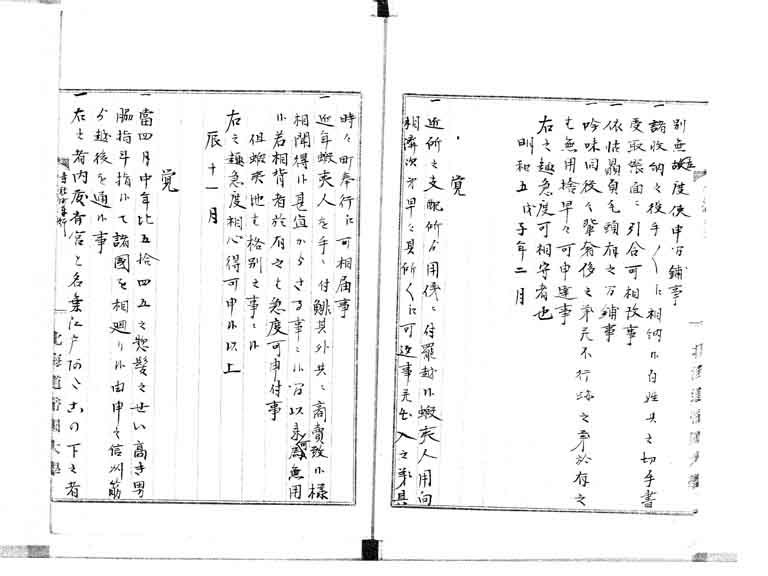 別無越度使申間鋪事
一 諸収納之役手〱ニ相納候百姓共之切手書
受取帳面ニ引合可相改事
依怙贔負毛頭有之間鋪事
一 吟味同役之輩奢侈之弟尤不行跡之弟於有之
も無用捨早々可申達事
右之趣急度可相守者也
明和五戊子年二月
覚
一 近所之支配所ゟ用儀ニ付罷越候蝦夷人用向
相済次第早々其所〱ニ可返事尤出入之弟具
時々町奉行江可相届事
一 近年蝦夷人を手ニ付鯡其外共ニ商売致候様
相聞得候甚宜からさる事ニ候間以来為無用
候若相背者於有之も急度可申付事
但蝦夷地も格別之事ニ候
右之趣急度相心得可申候以上
辰十一月
覚
一 當四月中年比五拾四五之惣髪之せい高き男
脇指斗指候て諸國を相廻り候由申之信州筋
ゟ越後を通候事
一 右之者内
名乗江戸
の下之者
北海道帝国大学